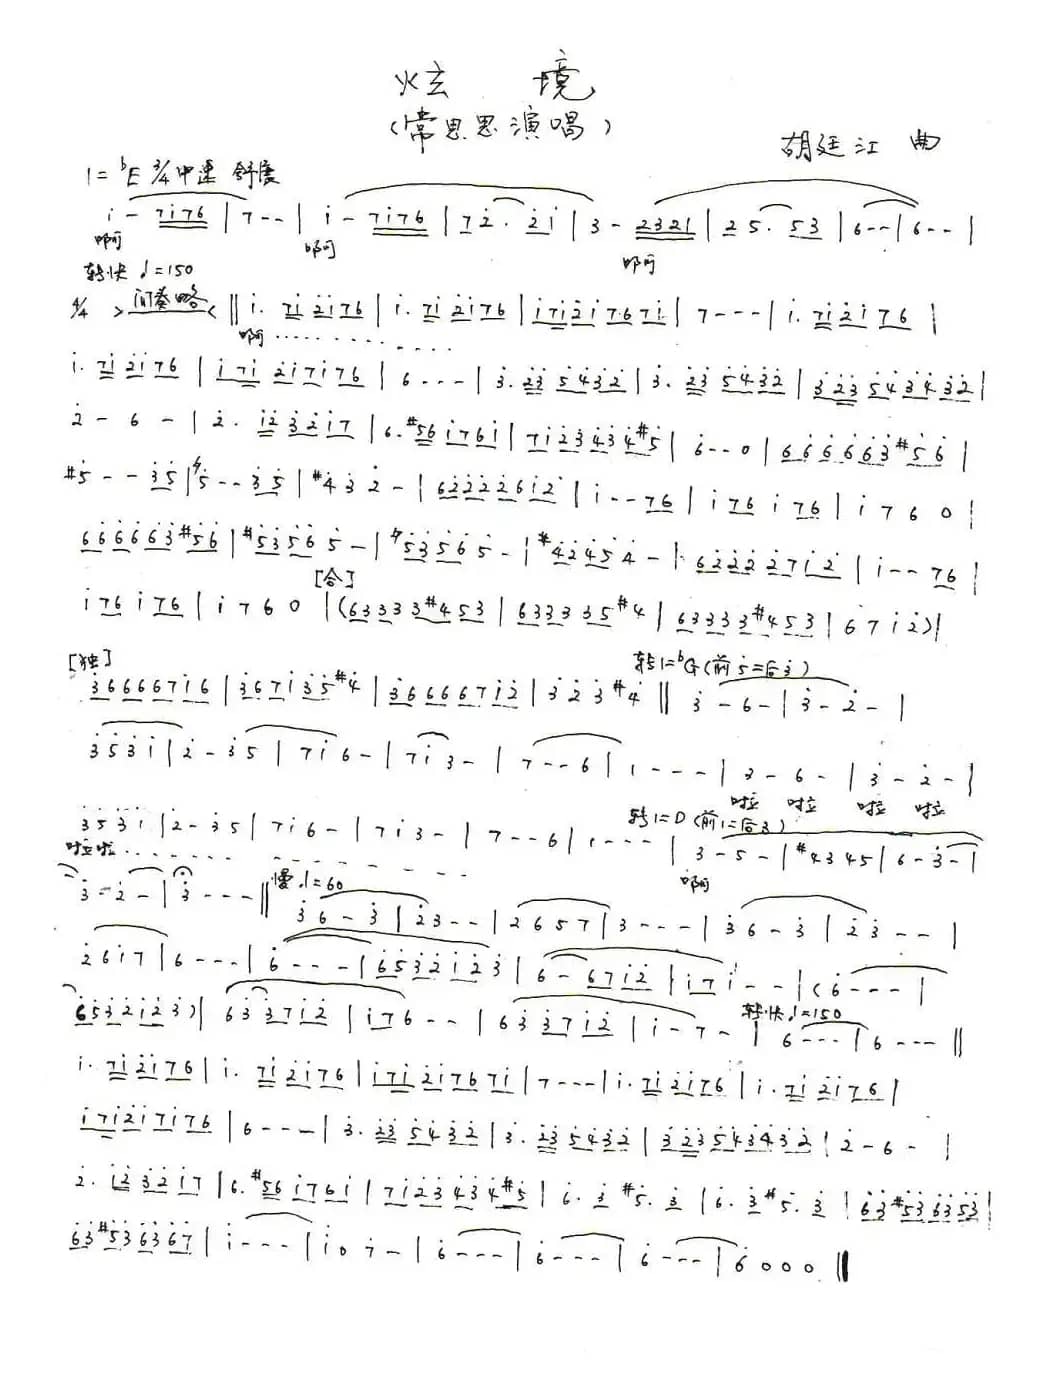 炫 境
(常思思演唱)
胡廷江 曲
1=ᵇE 3/4 中速 舒展
i̇ - 7i̇76 | 7 - - | i̇ - 7i̇76 | 7 2̇· 2̇i̇ | 3 - 2321 | 2 5· 53 | 6 - - | 6 - - |
啊 啊 啊
转快 ♩=150
4/4 > 间奏略 < ‖ i̇· 7i̇ 2̇i̇76 | i̇· 7i̇ 2̇i̇76 | i̇7i̇2̇i̇767i̇ | 7 - - - | i̇· 7i̇2̇i̇76 |
啊
i̇· 7i̇ 2̇i̇76 | i̇7i̇ 2̇i̇7i̇76 | 6 - - - | 3̇· 2̇3̇ 5̇4̇3̇2̇ | 3̇· 2̇3̇ 5̇4̇3̇2̇ | 3̇2̇3̇ 5̇4̇3̇4̇3̇2̇ |
2̇ - 6 - | 2̇· i̇2̇ 3̇2̇i̇7 | 6· #56 i̇76i̇ | 7i̇2̇3̇ 4̇3̇4̇#5̇ | 6̇ - - 0 | 6̇6̇6̇6̇6̇3̇#5̇6̇ |
#5̇ - - 3̇5̇ | 5̇ - - 3̇5̇ | #4̇ 3̇ 2̇ - | 62̇2̇2̇2̇6i̇2̇ | i̇ - - 76 | i̇ 76 i̇ 76 | i̇ 7 6 0 |
6̇6̇6̇6̇6̇3̇#5̇6̇ | #5̇3̇5̇6̇ 5̇ - | 5̇3̇5̇6̇ 5̇ - | #4̇2̇4̇5̇ 4̇ - | 62̇2̇2̇2̇7i̇2̇ | i̇ - - 76 |
[合]
i̇76 i̇76 | i̇ 7 6 0 | (63333#453 | 633335#4 | 63333#453 | 6 7 i̇ 2̇) |
[独] 转1=ᵇG (前5̇=后3̇)
3̇66667i̇6 | 3̇67i̇3̇5̇#4̇ | 3̇66667i̇2̇ | 3̇ 2̇ 3̇ #4̇ ‖ 3̇ - 6 - | 3̇ - 2̇ - |
3̇ 5̇ 3̇ i̇ | 2̇ - 3̇ 5̇ | 7 i̇ 6 - | 7 i̇ 3̇ - | 7 - - 6 | 1 - - - | 3 - 6 - | 3̇ - 2̇ - |
啦 啦 啦 啦
转1=D (前1=后3)
3̇ 5̇ 3̇ i̇ | 2̇ - 3̇ 5̇ | 7 i̇ 6 - | 7 i̇ 3̇ - | 7 - - 6 | 1 - - - | 3 - 5 - | #4 3 4 5 | 6 - 3̇ - |
啦啦 啊
慢 ♩=60
3̇ - 2̇ - | 3̇ - - - ‖ 3̇ 6 - 3̇ | 2̇ 3̇ - - | 2 6 5 7 | 3 - - - | 3̇ 6 - 3̇ | 2̇ 3̇ - - |
2̇ 6 i̇ 7 | 6 - - - | 6̇ - - - | 6̇5̇3̇2̇i̇2̇3̇ | 6 - 67i̇2̇ | i̇7i̇ - - | (6̇ - - - |
转快 ♩=150
6̇5̇3̇2̇i̇2̇3̇) | 63̇ 3̇7i̇2̇ | i̇76 - - | 63̇ 3̇7i̇2̇ | i̇ - 7 - | 6 - - - | 6 - - - ‖
i̇· 7i̇ 2̇i̇76 | i̇· 7i̇ 2̇i̇76 | i̇7i̇ 2̇i̇767i̇ | 7 - - - | i̇· 7i̇2̇i̇76 | i̇· 7i̇ 2̇i̇76 |
i̇7i̇2̇i̇7i̇76 | 6 - - - | 3̇· 2̇3̇ 5̇4̇3̇2̇ | 3̇· 2̇3̇ 5̇4̇3̇2̇ | 3̇2̇3̇5̇4̇3̇4̇3̇2̇ | 2̇ - 6 - |
2̇· i̇2̇ 3̇2̇i̇7 | 6· #56 i̇76i̇ | 7i̇2̇3̇ 4̇3̇4̇#5̇ | 6̇· 3̇ #5̇· 3̇ | 6̇· 3̇ #5̇· 3̇ | 6̇3̇#5̇3̇ 6̇3̇5̇3̇ |
6̇3̇#5̇3̇6̇3̇6̇7̇ | i̇ - - - | i̇ 0 7̇ - | 6̇ - - - | 6̇ - - - | 6̇ - - - | 6̇ 0 0 0 ‖